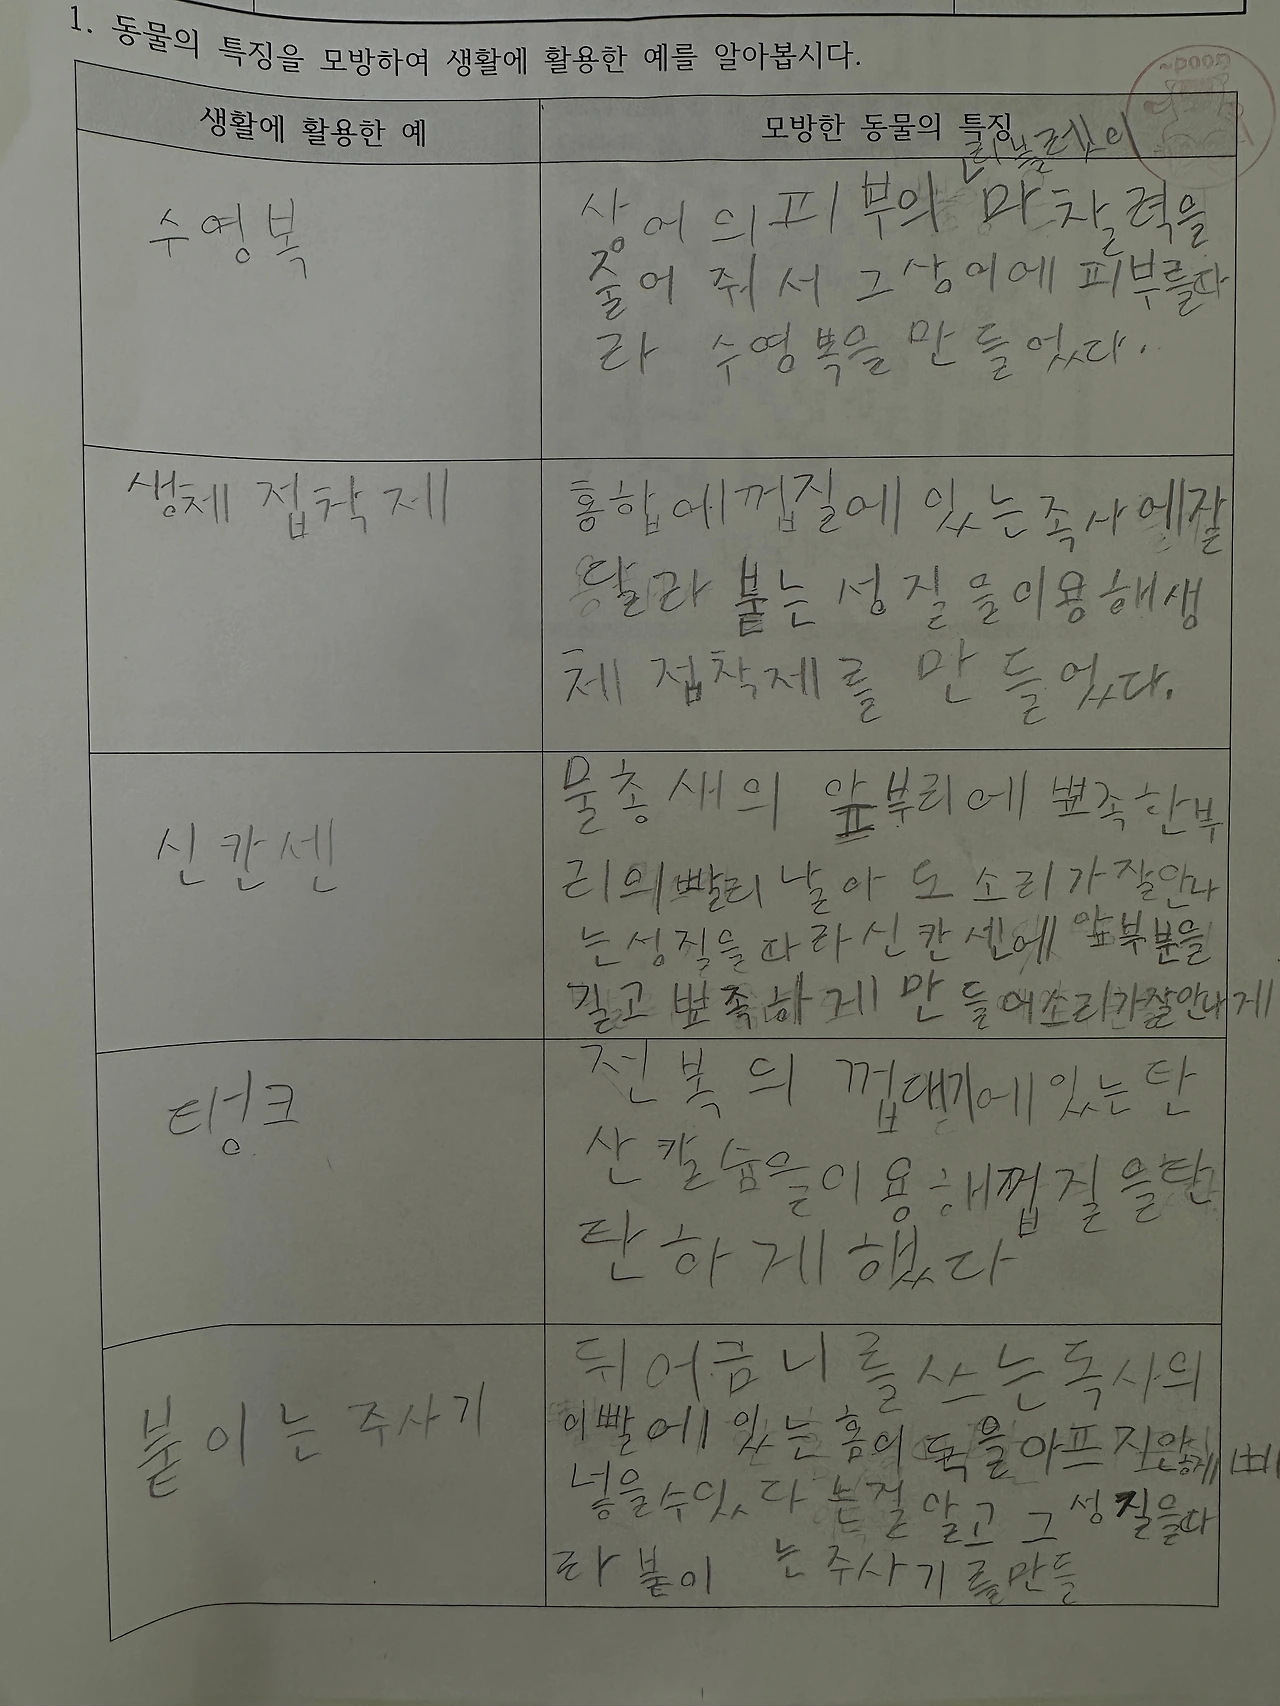 1. 동물의 특징을 모방하여 생활에 활용한 예를 알아봅시다.
Good~
생활에 활용한 예
모방한 동물의 특징
수영복
리블레이
상어의 피부의 마찰력을
줄어 줘서 그 상어에 피부를 따
라 수영복을 만들었다.
생체 접착제
홍합에 껍질에 있는 족사에 잘
달라 붙는 성질을 이용해 생
체 접착제를 만들었다.
신칸센
물총새의 앞부리에 뾰족한 부
리의 빨리 날아도 소리가 잘 안나
는 성질을 따라 신칸센에 앞부분을
길고 뾰족하게 만들어 소리가 잘 안나게
텡크
전복의 껍대기에 있는 탄
산칼슘을 이용해 껍질을 탄
탄하게 했다
붙이는 주사기
뒤어금니를 쓰는 독사의
이빨에 있는 홈이 독을 아프지 않게
넣을 수 있다는 걸 알고 그 성질을 따
라 붙이는 주사기를 만들